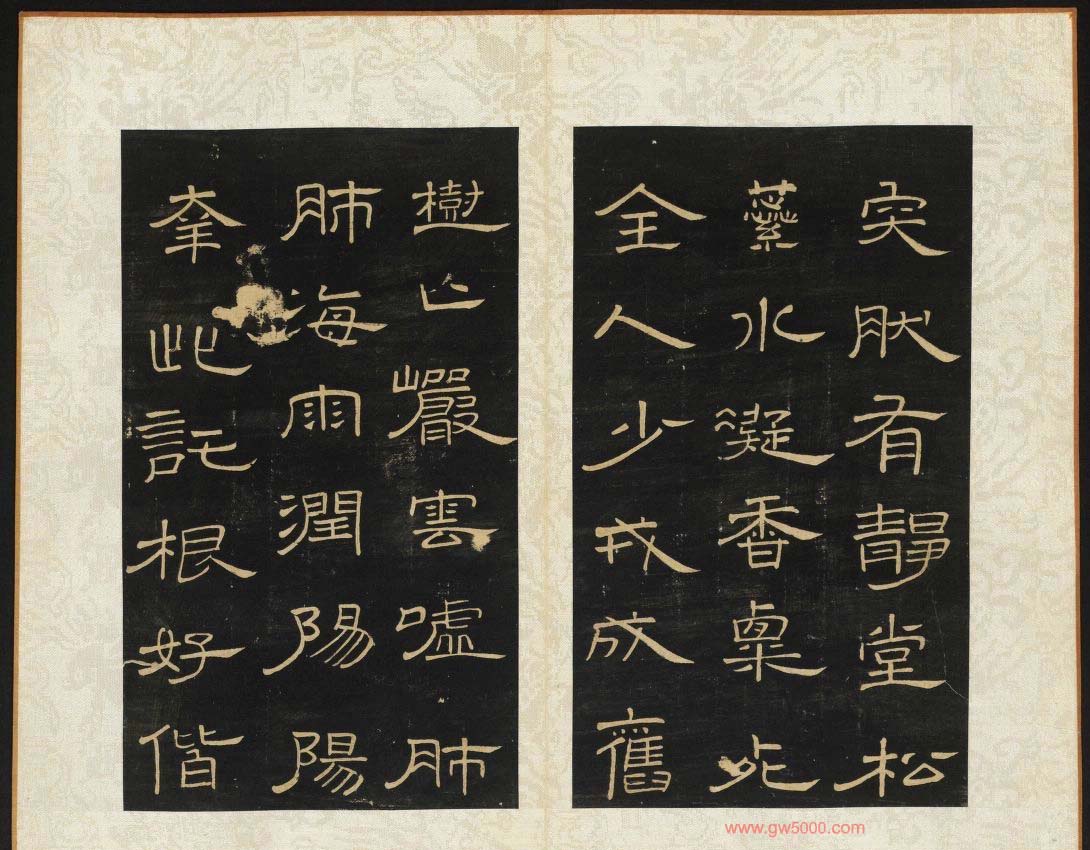 突肰有靜堂松
蘂水凝香稟
全人少戎成舊
樹巖雲噓肺
肺海雨潤陽
此託根好偕
www.gw5000.com